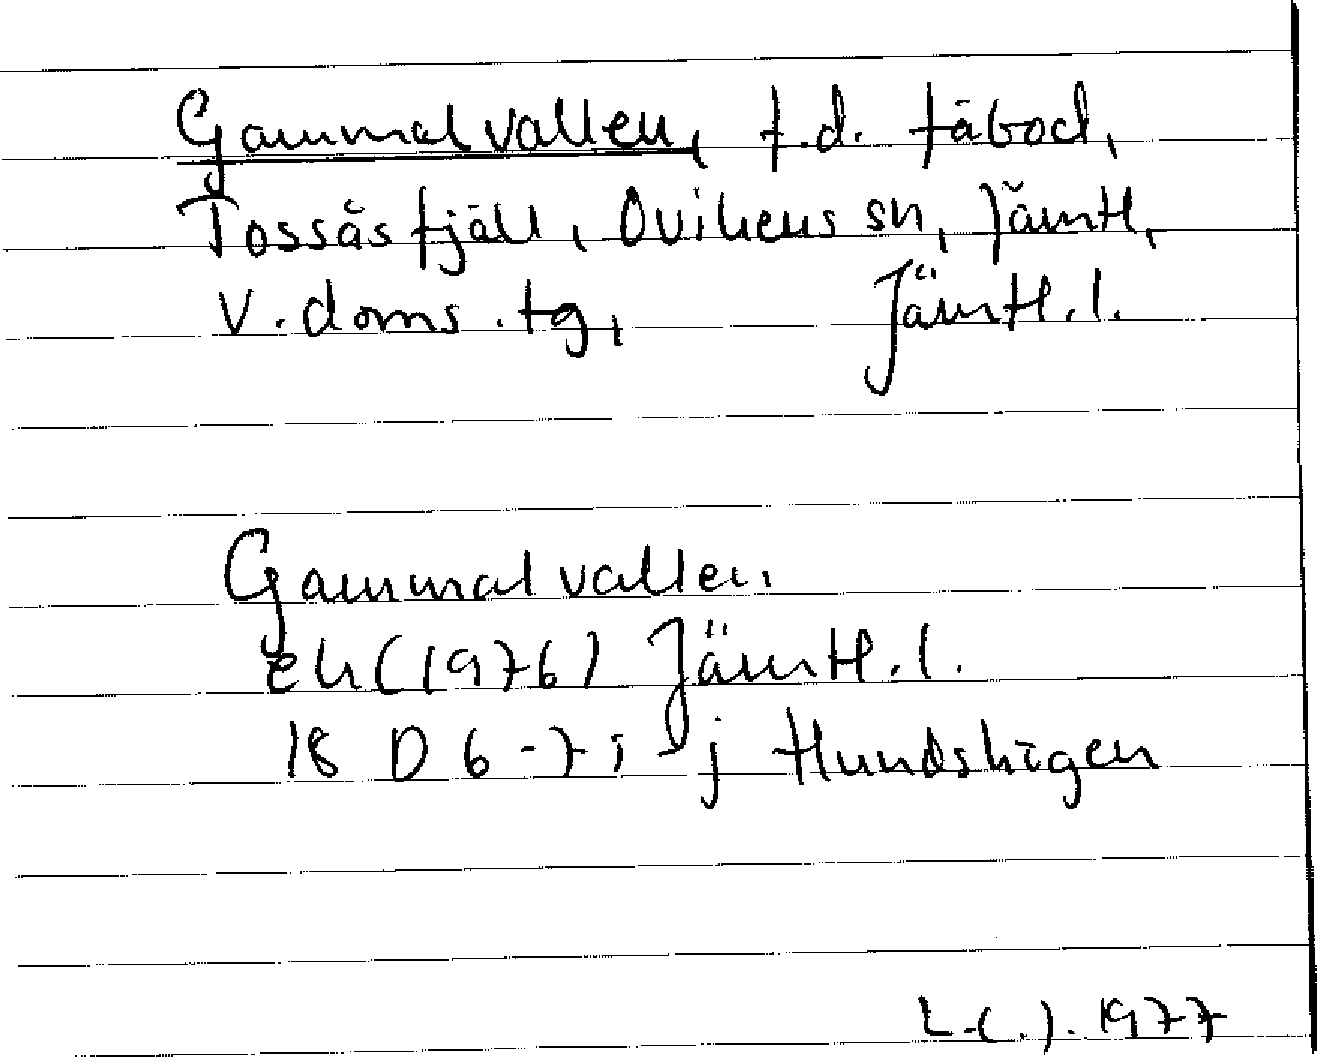 Gammalvallen, f.d. fäbod,
Tossåsfjäll, Ovikens sn, Jämtl,
V. doms. tg, Jämtl. l.
Gammalvallen
ek (1976) Jämtl. l.
18 D 6-7 i - j Hundshögen
L.(.). 1977